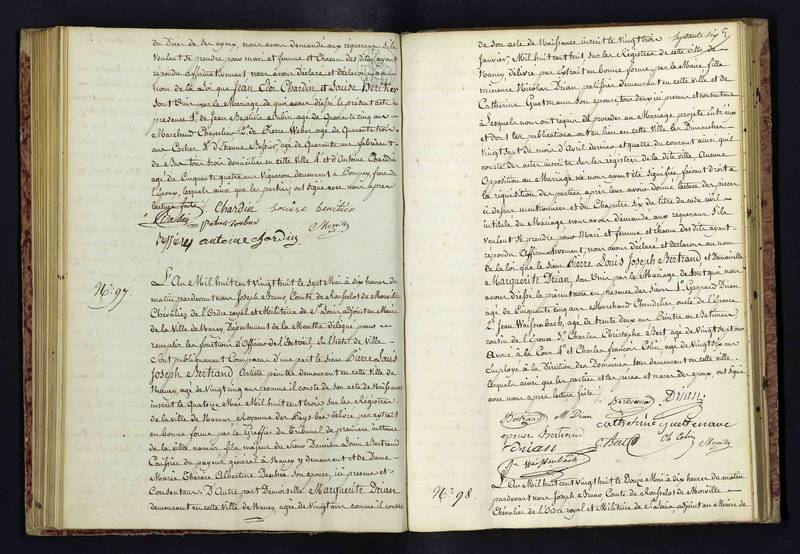 du Décès de ses ayeux, nous avons demandé aux requérans s'ils
veulent se prendre pour mari et femme et chacun des dits ayant
répondu affirmativement nous avons déclaré et déclarons au
nom de la loi que Jean Cloi Chardin et Louise Benitier
sont Unis par le Mariage de quoi avons dressé le présent acte en
présence de Jean Baptiste agé de Quarante cinq ans
Marchand Chapelier 2º de Pierre Weber agé de Quarante trois
ans Cocher 3º d'Etienne Bessier, agé de Quarante ans fabricant
de Bas tous trois domiciliés en cette Ville 4º et d'Antoine Chardin
agé de Cinquante quatre ans Vigneron demeurant à frère de
l'époux, lesquels ainsi que les parties ont signé avec nous après
lecture faite
Chardin Louise benitier
Morville
antoine chardin
Nº 97.
L'An Mil huit cent Vingt huit le Sept Mai à dix heures du
matin pardevant nous Joseph Bruno Comte de Rousselot de Morville
Chevalier de l'Ordre royal et Militaire de St Louis adjoint au Maire
de la Ville de Nancy Département de la Meurthe délégué pour
remplir les fonctions d'Officier de l'Etat civil. En l'hôtel de Ville
Sont publiquement Comparus D'une part le Sieur Pierre Louis
Joseph Bertrand Artiste peintre demeurant en cette Ville de
Nancy, agé de Vingt cinq ans comme il conste de son acte de Naissance
inscrit le Quatorze Mai Mil huit cent trois sur les Registres
de la ville de Namur Royaume des Pays bas délivré par extrait
en bonne forme par le Greffier du Tribunal de première instance
de la ville namur fils majeur du Sieur Damien Louis Bertrand
Caissier du payeur général à Nancy y demeurant et de Dame
Marie Thérèse Albertine son épouse, ici présens et
Consentans. D'Autre part Demoiselle Marguerite Drian
demeurant en cette Ville de Nancy, agée de Vingt ans comme il conste
Septante six
de son acte de Naissance inscrit le Vingt trois
Janvier, Mil huit cent huit, sur les Registres de cette ville de
Nancy délivré par Extrait en bonne forme par le Maire fille
mineure Nicolas Drian, patissier demeurant en cette Ville et de
Catherine Guetmann son épouse tous deux ici présens et consentans
Lesquels nous ont requis de procéder au Mariage projetté entr'eux
et dont les publications ont eu lieu en cette Ville les Dimanches
Vingt sept du mois d'Avril dernier et quatre du courant ainsi qu'il
conste des actes inscrits sur les registres de la dite ville, Aucune
Opposition au Mariage ne nous ayant été signifiée faisant droit à
la réquisition des parties après leur avoir donné lecture des pièces
ci dessus mentionnées et du Chapitre Six du titre du code civil
intitulé du Mariage nous avons demandé aux requérans S'ils
veulent se prendre pour Mari et femme et chacun des dits ayant
répondu Affirmativement, nous avons déclaré et déclarons au nom
de la loi que le sieur Pierre Louis Joseph Bertrand et Demoiselle
Marguerite Drian sont Unis par le Mariage de tout quoi nous
avons dressé le présent acte en présence des Sieurs 1º Gaspard Drian
agé de Cinquante cinq ans Marchand Chandelier oncle de l'Epouse
2º Jean Weissenbach, agé de trente deux ans Peintre en Batiment,
cousin de l'Epouse 3º Charles Christophe Bert agé de Vingt sept ans
Avoué à la Cour 4º et Charles françois Colin, agé de Vingt six ans
Employé à la Direction des Domaines tous demeurant en cette ville.
lesquels ainsi que les parties et les pères et mères des époux, ont signé
avec nous après lecture faite.
Bertrand M Drian Bertrand Drian
epouse Bertrand catherine
Drian C. Bert Ch Colin Morville
Jn Weissenbach
Nº 98.
L'An Mil huit cent Vingt huit le Douze Mai à dix heures du matin
pardevant nous Joseph Bruno Comte de Rousselot de Morville
Chevalier de l'Ordre royal et Militaire de St Louis adjoint au Maire de